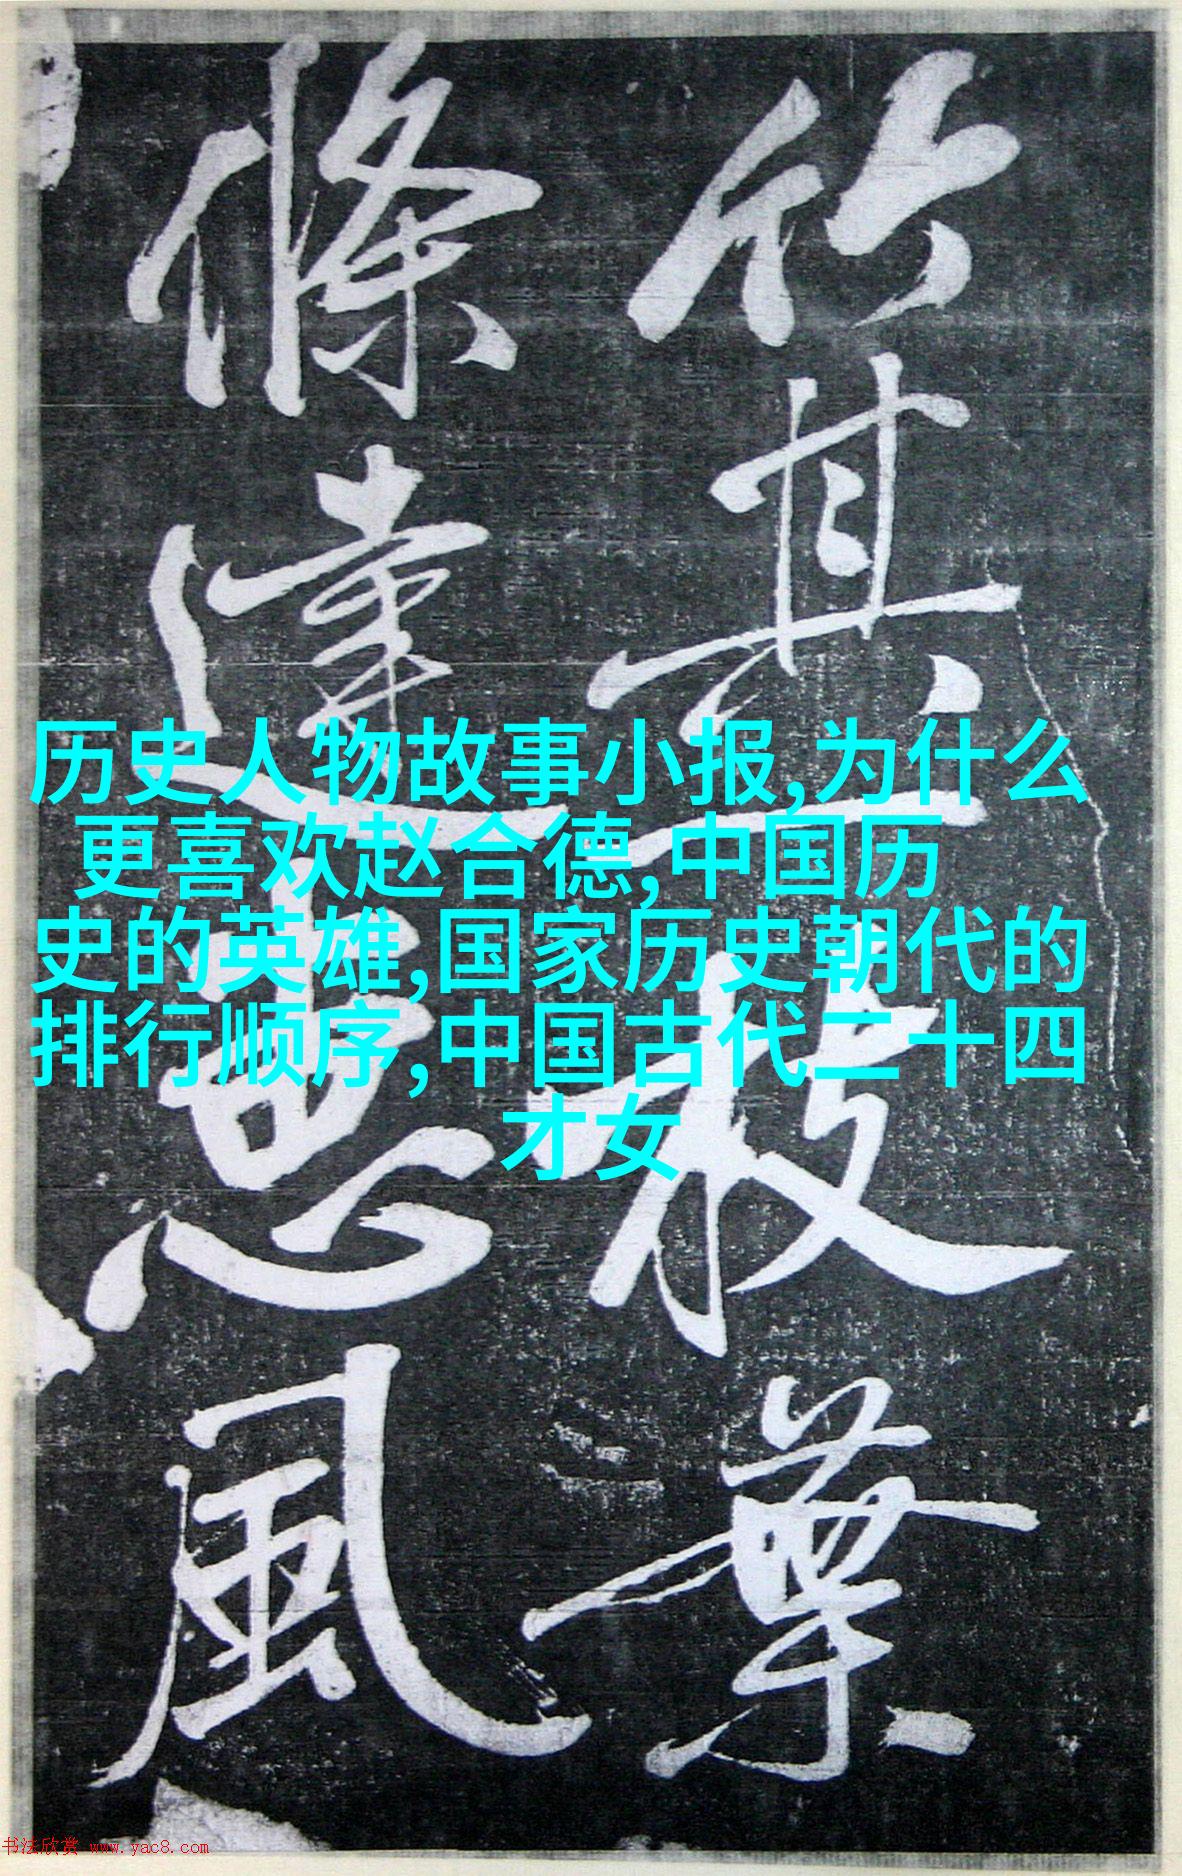 竹其一枝葉
條達惠風
历史人物故事小报,为什么
更喜欢赵合德,中国历
史的英雄,国家历史朝代的
排行顺序,中国古代二十四
才女
书法欣赏 www.yac8.com